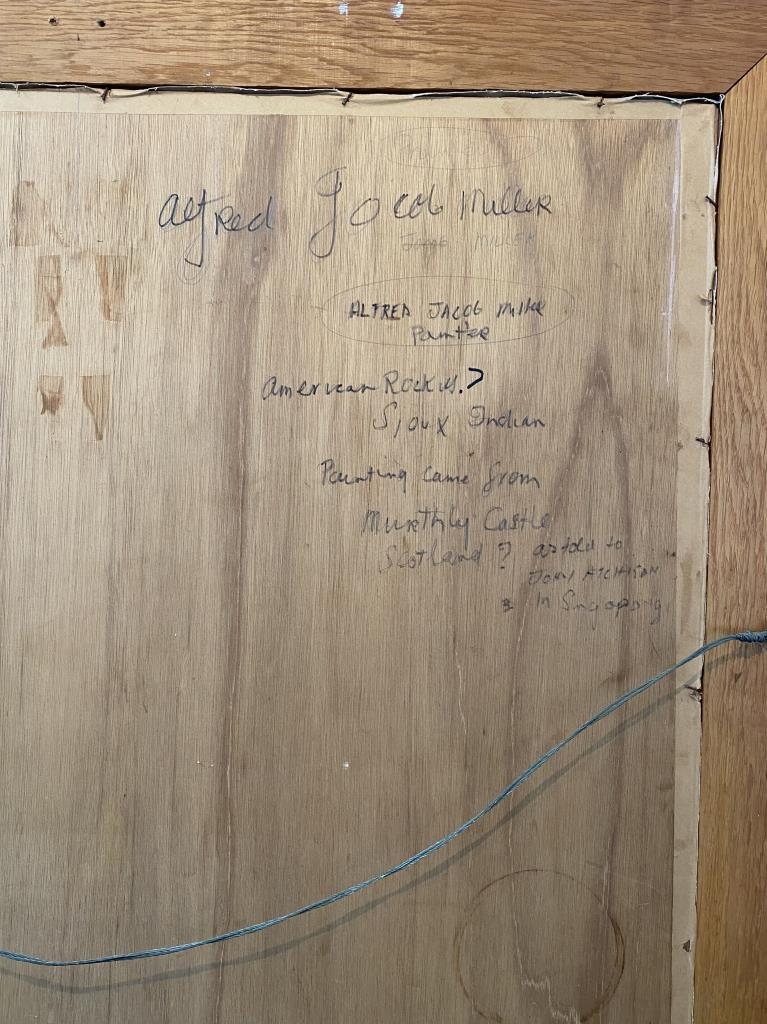 Alfred Jacob Miller
Jacob MILLER
ALFRED JACOB Miller
Painter
American Rockies.?
Sioux Indian
Painting came from
Murthly Castle
Scotland ? as told to
JOHN
in